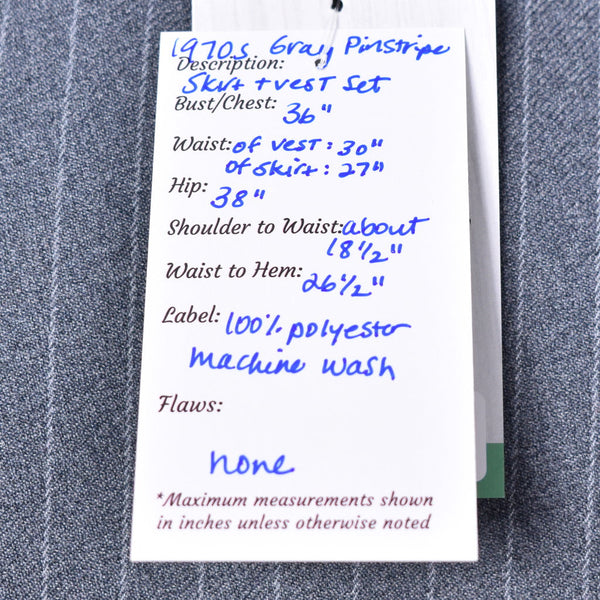 1970s Gray Pinstripe
Description:
Skirt + vest Set
Bust/Chest: 36"
Waist: of vest: 30"
of skirt: 27"
Hip: 38"
Shoulder to Waist: about
18 1/2"
Waist to Hem: 26 1/2"
Label: 100% polyester
machine wash
Flaws:
none
*Maximum measurements shown
in inches unless otherwise noted